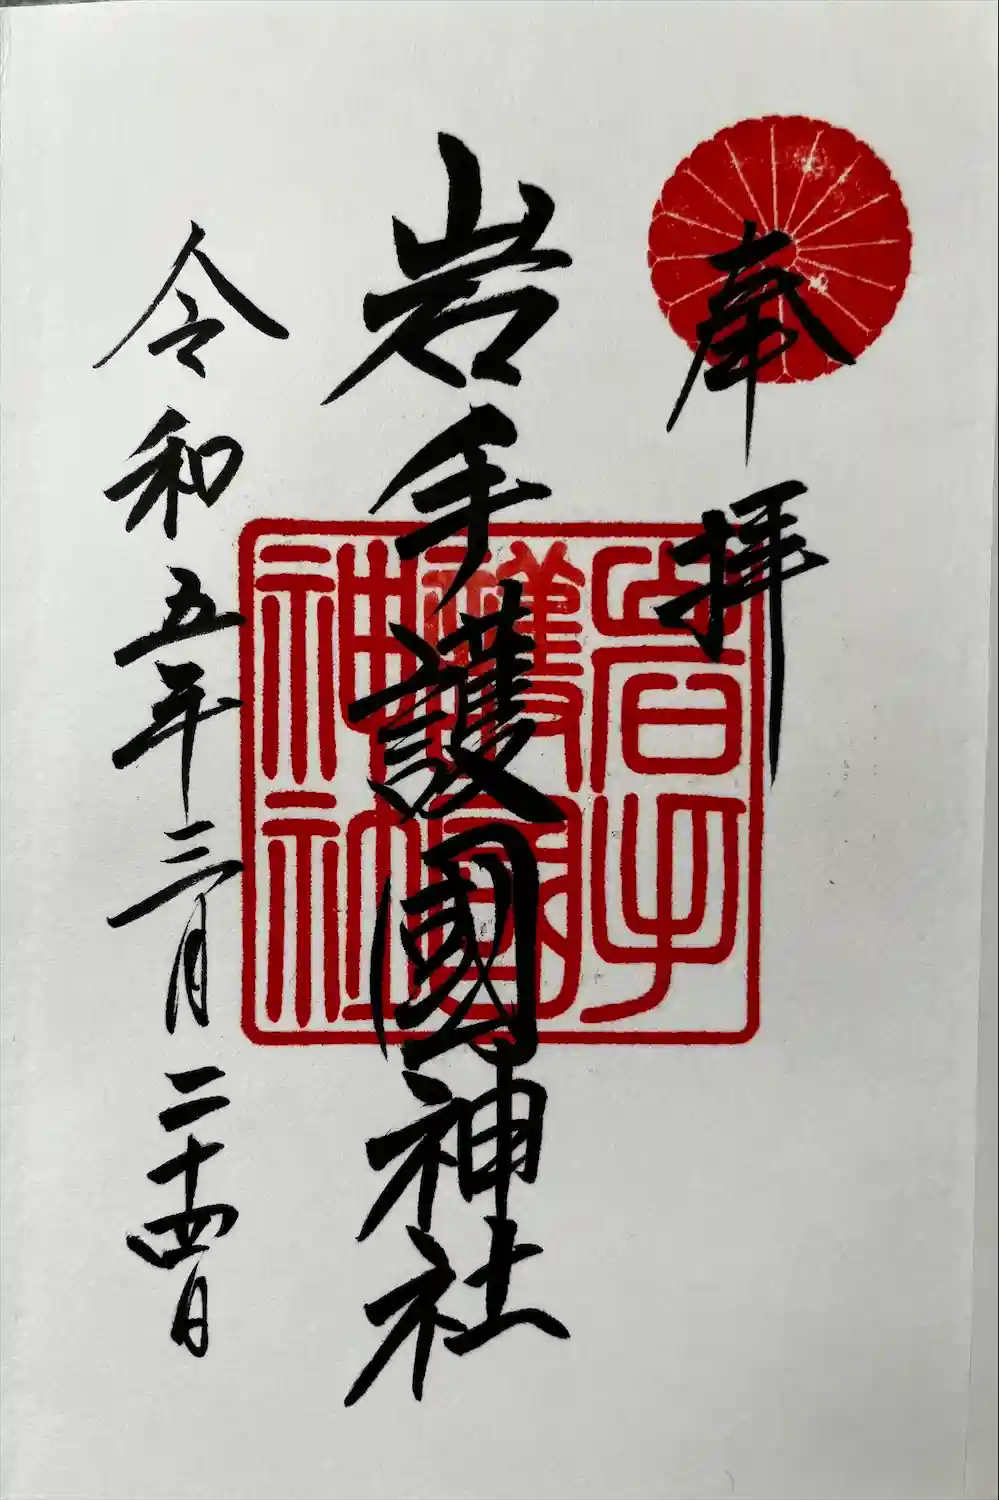 奉拝
岩手護國神社
岩手
護國
神社
令和五年三月二十四日